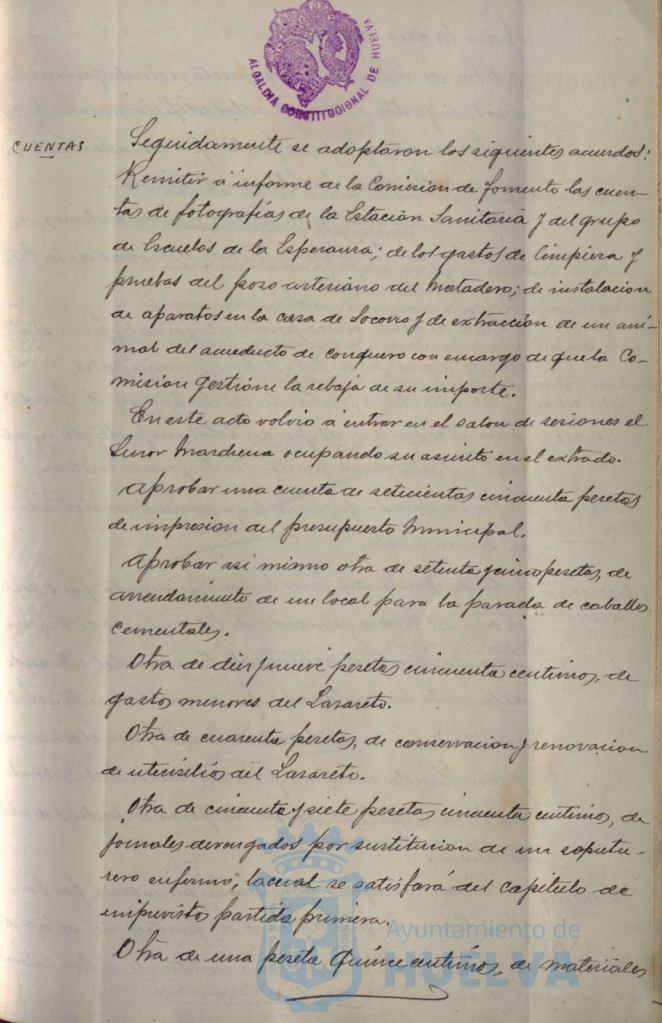 ALCALDIA CONSTITUCIONAL DE HUELVA
CUENTAS
Seguidamente se adoptaron los siguientes acuerdos:
Remitir á informe de la Comision de fomento las cuen-
tas de fotografías de la Estacion Sanitaria y del grupo
de Escuelas de la Esperanza; de los gastos de limpieza y
pruebas del pozo artesiano del Matadero; de instalacion
de aparatos en la casa de Socorro y de extracción de un ani-
mal del acueducto de conquero con encargo de que la Co-
mision gestione la rebaja de su importe.
En este acto volvio á entrar en el salon de sesiones el
Señor Marchena ocupando su asiento en el extrado.
Aprobar una cuenta de setecientas cincuenta pesetas
de impresion del presupuesto Municipal.
Aprobar asi mismo otra de setenta y cinco pesetas, de
arrendamiento de un local para la parada de caballos
cementales.
Otra de diez y nueve pesetas cincuenta centimos, de
gastos menores del Lazareto.
Otra de cuarenta pesetas, de conservacion y renovacion
de utensilios del Lazareto.
Otra de cincuenta y siete pesetas cincuenta centimos, de
jornales devengados por sustitucion de un sepultu-
rero enfermo; la cual se satisfará del capitulo de
imprevistos partida primera.
Otra de una peseta quince centimos, de materiales
Ayuntamiento de
HUELVA